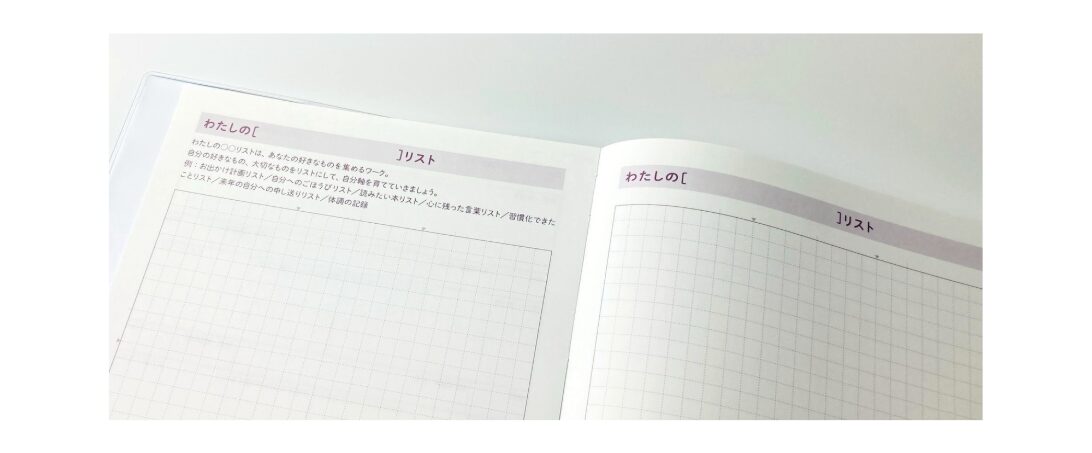 わたしの[　　　]リスト
わたしの○○リストは、あなたの好きなものを集めるワーク。
自分の好きなもの、大切なものをリストにして、自分軸を育てていきましょう。
例：お出かけ計画リスト／自分へのごほうびリスト／読みたい本リスト／心に残った言葉リスト／習慣化できた
ことリスト／来年の自分への申し送りリスト／体調の記録
わたしの[　　　]リスト